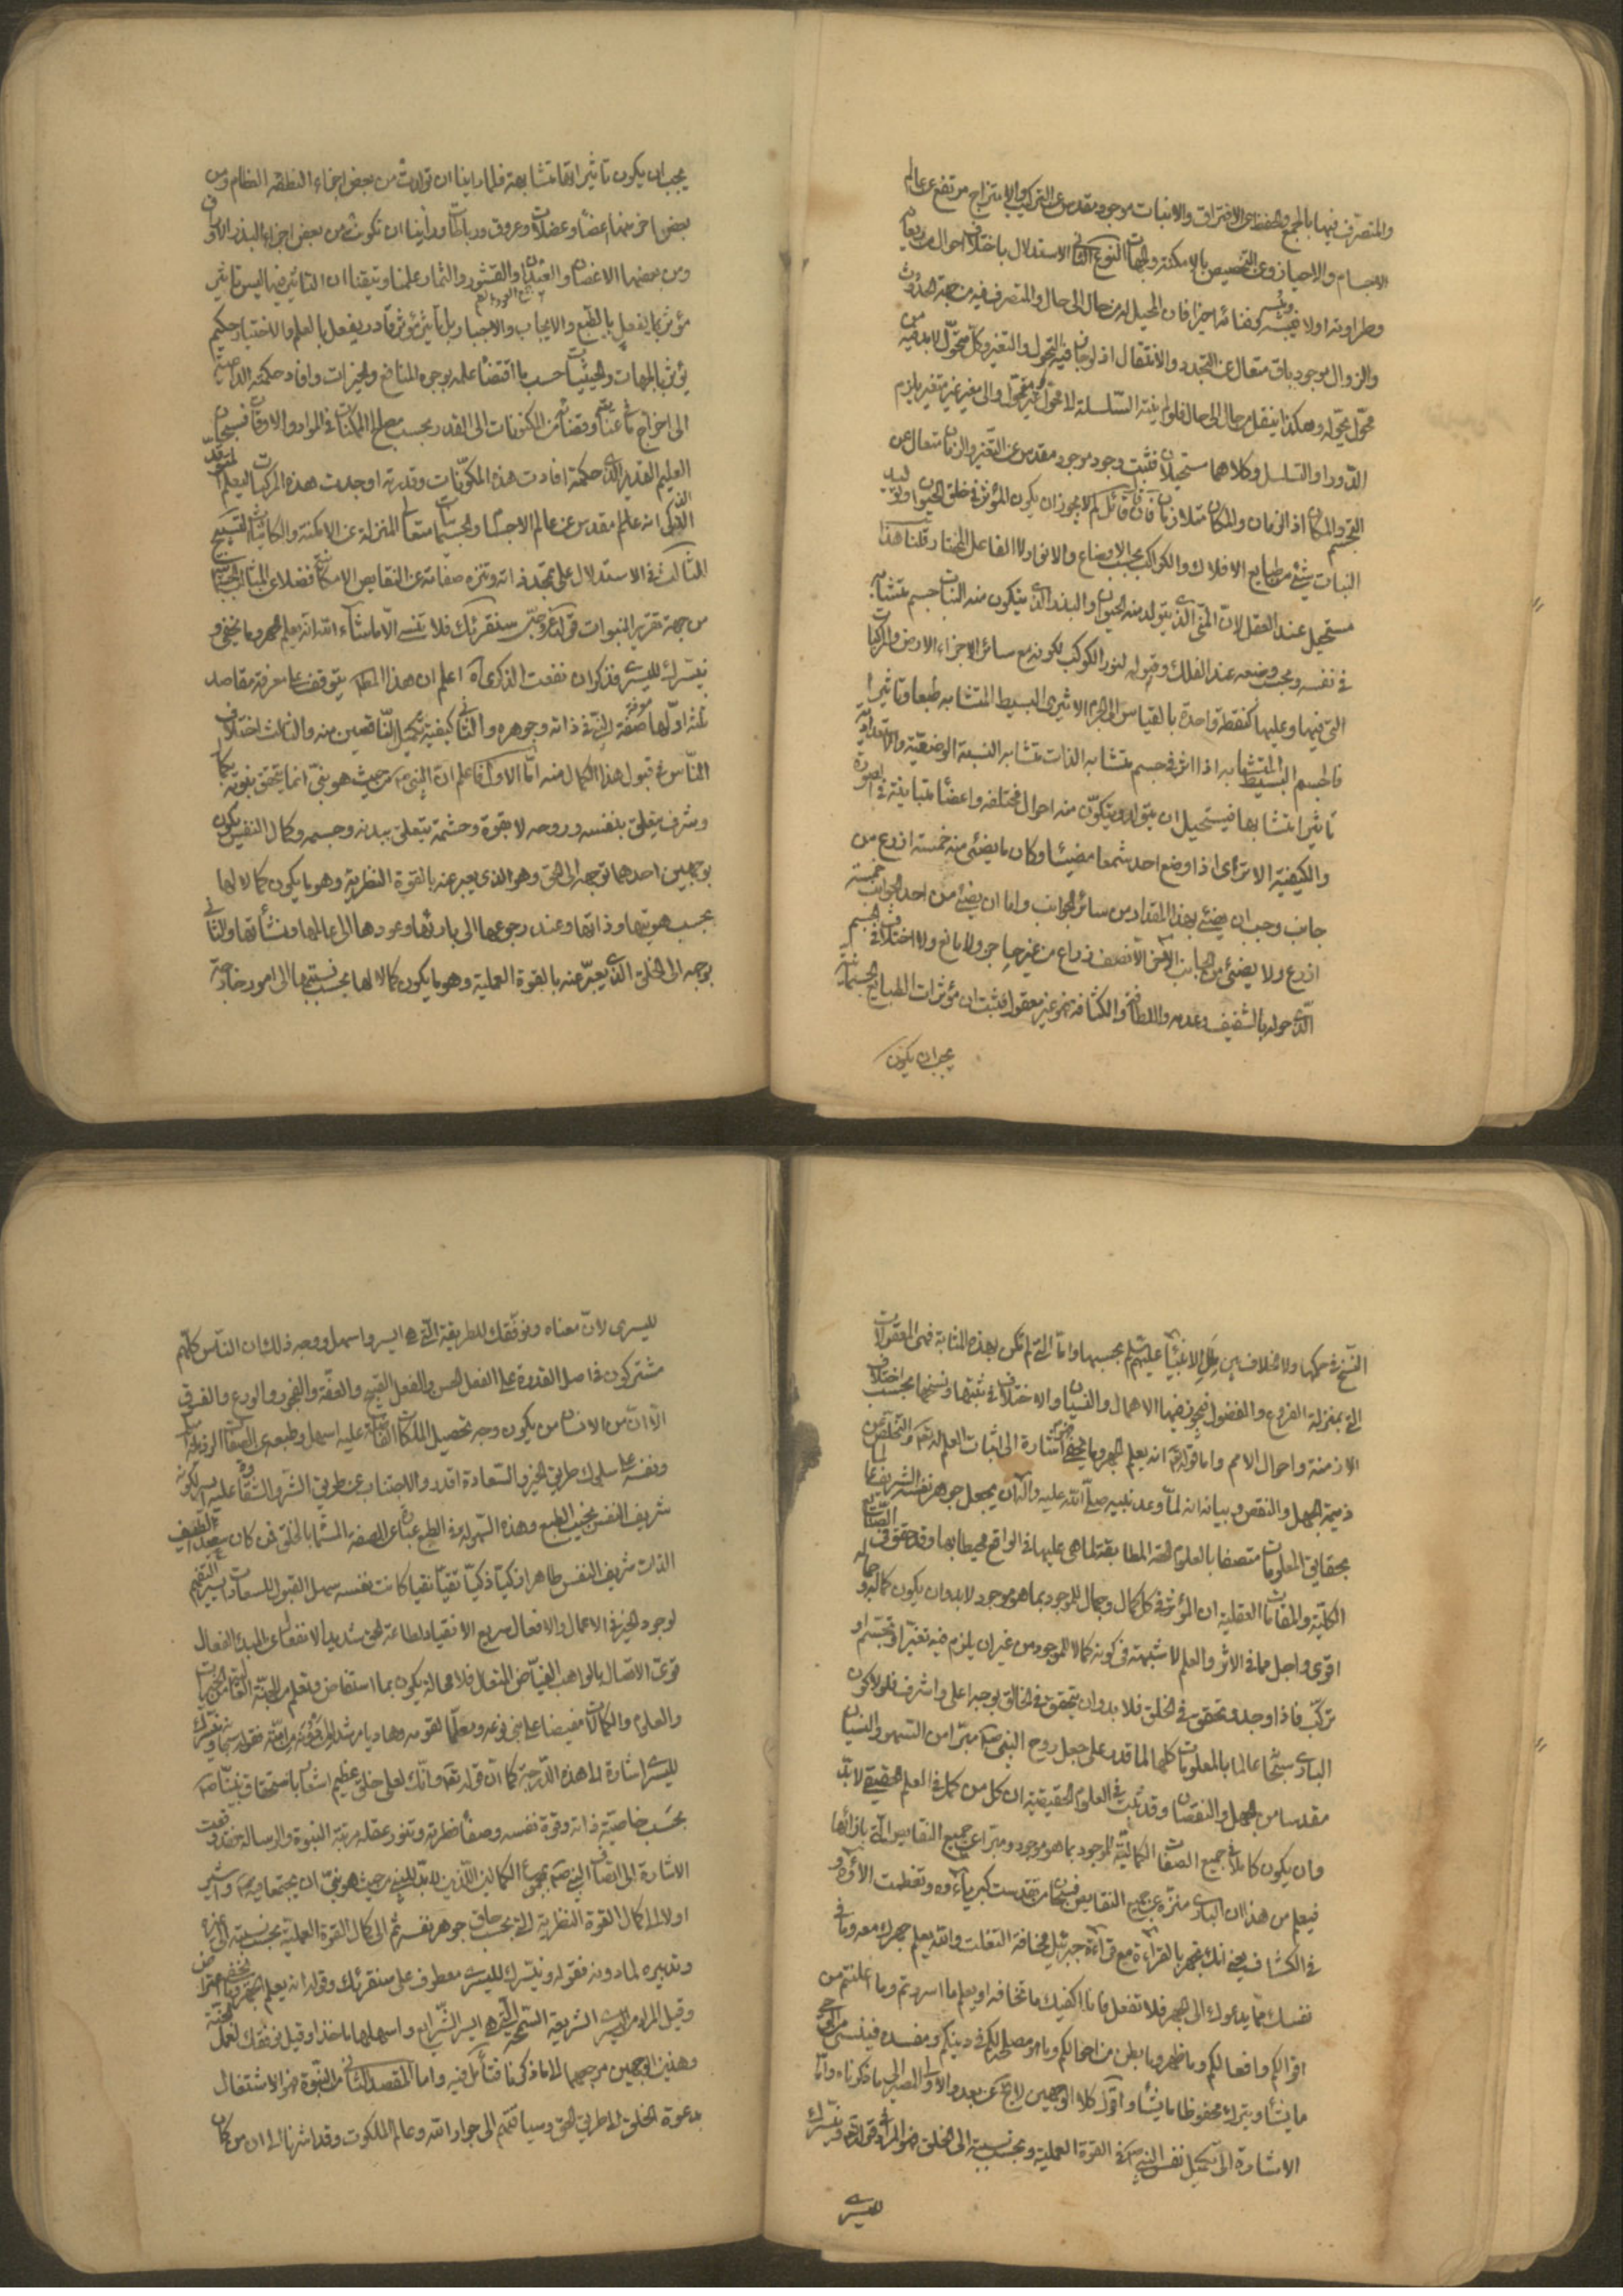 والمتصرف فيها بالجمع والحفظ عن الافتراق والانبتات موجود مقدس عن التركيب والامتزاج مرتفع عن عالم
الاجسام والاحياز وعن التخصيص بالامكنة والجهات النوع الثانى الاستدلال باختلاف احوال من ريعانه
وطراوته اولا ويبسه وفنائه اخيرا فان المحيل له من حال الى حال والمتصرف فيه من جهة الحدوث
والزوال موجود باق متعال عن التجدد والانتقال اذ لو جاز فيه التحول والتغير وكل متحول لابد فيه من
محول يحوله وهكذا ينقل من حال الى حال فلو لم ينته السلسلة الى محول غير متحول والى مغير غير متغير يلزم
الدور او التسلسل وكلاهما مستحيلان فثبت وجود موجود مقدس عن التغير والزمان متعال عن
التجسم والمكان اذ الزمان والمكان متلازمان فان قال قائل لم لا يجوز ان يكون المؤثر فى خلق الحيوان وتوليد
النبات شىء من طبايع الافلاك والكواكب بحسب الاوضاع والانوار لا الفاعل المختار قلنا هذا
مستحيل عند العقل لان المنى الذى يتولد منه الحيوان والبذر الذى يتكون منه النبات جسم متشابه
فى نفسه وبحسب وضعه عند الفلك وقبوله لنور الكوكب لكونه مع سائر الاجزاء الارض والمركبات
التى فيها وعليها كنقطة واحدة بالقياس الى الجرم الاثيرى البسيط المتشابه طبعا وتاثيرا
فالجسم البسيط المتشابه اذا اثر فى جسم متشابه الذات متشابه النسبة الوضعية والاستعدادية
تاثيرا متشابها فيستحيل ان يتولد ويتكون منه احوال مختلفه واعضاء متباينة فى الصورة
والكيفية الا ترى اذا وضع احد شمعا مضيئا وكان ما يضىء منه خمسة اذرع من
جانب وجب ان يضىء بهذا المقدار من سائر الجوانب واما ان يضىء من احد الجوانب خمسة
اذرع ولا يضىء من الجانب الاخر الا نصف ذراع من غير حاجز ولا مانع ولا اختلاف فى جسم
الذى حوله بالشفيف وعدمه واللطافة والكثافة فهو غير معقول فثبت ان مؤثرات الطبايع الجسمانية
يجب ان يكون
يجب ان يكون تاثيراتها متشابهة فلما راينا ان تولدت من بعض اجزاء النطفه العظام ومن
بعض اخر منها اعضاء وعضلات وعروق ورباطات وراينا ان تكونت من بعض اجزاء البذر الاوراق
ومن بعضها الاغصان والعيدان والقشور والثمار علمنا وتيقنا ان التاثير فيها ليس تاثير
مؤثر بما يفعل بالطبع والايجاب والاجبار بل تاثير مؤثر قادر يفعل بالعلم والاختيار حكيم
يؤثر بالجهات والحيثيات حسب ما اقتضاه علمه بوجوه المنافع والخيرات وافاد حكمته الداعية
الى اخراج ما فى عنايته وقضائه من المكنونات الى القدر بحسب مصلح الممكنات فى المواد والاوقات فسبحان
العليم القدير الذى حكمته افادت هذه المكونات وقدرته اوجدت هذه المركبات ليعلم
الذكى انه عالم مقدس عن عالم الاجسام والجسمانيات متعالى المنزلة عن الامكنة والكائنات التسبيح
الثالث فى الاستدلال على تمجد ذاته وتنزه صفاته عن النقايص الامكانى فضلا عن المثالب الجسمانية
من جهة تقرير النبوات قوله عز وجل سنقرئك فلا تنسى الا ما شاء الله انه يعلم الجهر وما يخفى و
نيسرك لليسرى فذكر ان نفعت الذكرى اه اعلم ان هذا المطلب يتوقف على معرفة مقاصد
ثلثة اولها معرفة صفة النبى فى ذاته وجوهره والثانى كيفية تكميل الناقصين منه والثالث اختلاف
الناس فى قبول هذا الكمال منه اما الاول فاعلم ان النبى من حيث هو نبى انما يتحقق نبوته بكمال
وشرف يتعلق بنفسه وروحه لا بقوة وحشمة يتعلق ببدنه وجسمه وكمال النفس يكون
بوجهين احدهما توجه الى الحق وهو الذى يعبر عنه بالقوة النظرية وهو ما يكون كمالا لها
بحسب هويتها وذاتها وعند رجوعها الى بارئها وعودها الى عالمها ومنشأتها والثانى
بوجه الى الخلق الذى يعبر عنه بالقوة العملية وهو ما يكون كمالا لها بحسب نسبتها الى امور خارجة
النسخ فى حكمها ولا خلاف بين رسل الانبياء عليهم السلم بحسبها واما التى لم تكن بهذه المثابة فهى المعقولات
التى بمنزلة الفروع والفضول فيجوز فيها الاهمال والنسيان والاختلاف فى ثبتها ونسخها بحسب اختلاف
الازمنة واحوال الامم واما قوله تعالى انه يعلم الجهر وما يخفى فهو اشارة الى اثبات العلم له تعالى والتخلص عن
ذميمة الجهل والنقص وبيانه انه لما وعد نبيه صلى الله عليه وآله ان يجعل جوهر نفسه الشريف عالما
بحقايق المعلومات متصفا بالعلوم الحقه المطابقة لما هى عليها فى الواقع محيطا بها وقد حقق فى الصناعات
الكلية والمقامات العقلية ان المؤثر فى كل كمال وجمال للموجود بما هو موجود لابد وان يكون كماله وجماله
اقوى واجل مما فى الاثر والعلم لا شبهة فى كونه كمالا للموجود من غير ان يلزم فيه تغير او تجسم او
تركب فاذا وجد وتحقق فى الخلق فلابد وان يتحقق فى الخالق بوجه اعلى واشرف فلو لا كون
البارى سبحانه عالما بالمعلومات كلها لما قدر على جعل روح النبى صلى مبرا من السهو والنسيان
مقدسا من الجهل والنقصان وقد ثبت فى العلوم الحقيقية ان كل من كمل فى العلم الحقيقى لابد
وان يكون كاملا فى جميع الصفات الكمالية للموجود بما هو موجود ومبرا عن جميع النقايص التى بازائها
فيعلم من هذا ان البارى منزه عن جميع النقايص فسبحان من تقدست كبرياءوه وتعظمت الاؤه و
فى الكشاف يعنى انك تجهر بالقراءة مع قراءة جبرئيل مخافة التفلت والله يعلم جهرك معه وما فى
نفسك مما يدعوك الى الجهر فلا تفعل فانا اكفيك ما تخافه او يعلم ما اسررتم وما اعلنتم من
اقوالكم وافعالكم وما ظهر وما بطن من احوالكم وما هو مصلحة لكم فى دينكم ومفسدة فينسى من الوحى
ما يشاء ويترك محفوظا ما يشاء واقول كلا الوجهين لا يخ عن بعد والاولى المصير الى ما ذكرناه واما
الاشارة الى تكميل نفس النبى صلى فى القوة العملية وبحسب نسبته الى الخلق فهو المراد فى قوله تعالى ونيسرك
لليسرى
لليسرى لان معناه ونوفقك للطريقة التى هى ايسر واسهل ووجه ذلك ان الناس كلهم
مشتركون فى اصل القدرة على الفعل الحسن والفعل القبيح والعفة والفجور والورع والفسق
الا ان من الانسان من يكون وجه تحصيل الملكات الفاضلة عليه اسهل وطبعه عن الصفات الرذيلة
ونفسه على سلوك طريق الخير والسعادة اقدر والاجتناب عن طريق الشر والشقاوة عليه ايسر لكونه
شريف النفس نجيب الطبع وهذه السهولة فى الطبع عبارة عن الصفة المسماة بالخلق فمن كان سعيد لطيف
الذات شريف النفس طاهرا زكيا ذكيا تقيا نقيا كانت نفسه سهل القبول للسعادات
لوجود الخير فى الاعمال والافعال سريع الانقياد لطاعة الحق شديد الانفعال عن المبدء الفعال
قوى الاتصال بالواهب الفياض المتعال فلا محالة يكون بما استفاض وتعلم من الجنة العالية
والعلوم والكمالات مفيضا على بنى نوعه ومعلما لقومه وهاديا مرشدا فقوله سبحانه ونيسرك
لليسرى اشارة الى هذه الدرجة كما ان قوله تعالى وانك لعلى خلق عظيم اشعار باستحقاق نبينا صلى
بحسب خاصية ذاته وقوة نفسه وصفاء فطرته وتنور عقله مرتبة النبوة والرسالة فقد وقعت
الاشارة الى اتصاف النبى صلى بمجموع الكمالين اللذين لابد للنبى من حيث هو نبى ان يجتمعا فيه واشير
اولا الى كمال القوة النظرية التى بحسب حاق جوهر نفسه ثم الى كمال القوة العملية بحسب نسبته الى غيره
وتدبيره لما دونه فقوله ونيسرك لليسرى معطوف على سنقرئك وقوله انه يعلم الجهر وما يخفى اعتراض
وقيل المراد من اليسرى الشريعة السمحة التى هى ايسر الشرايع واسهلها ماخذا وقيل نوفقك لعمل الجنة
وهذين الوجهين مرجعهما الى ما ذكرنا فتأمل فيه واما المقصد الثانى من النبوة فهو الاشتغال
بدعوة الخلق الى طريق الحق وسياقتهم الى جوار الله وعالم الملكوت وقد اشرنا الى ان من كان